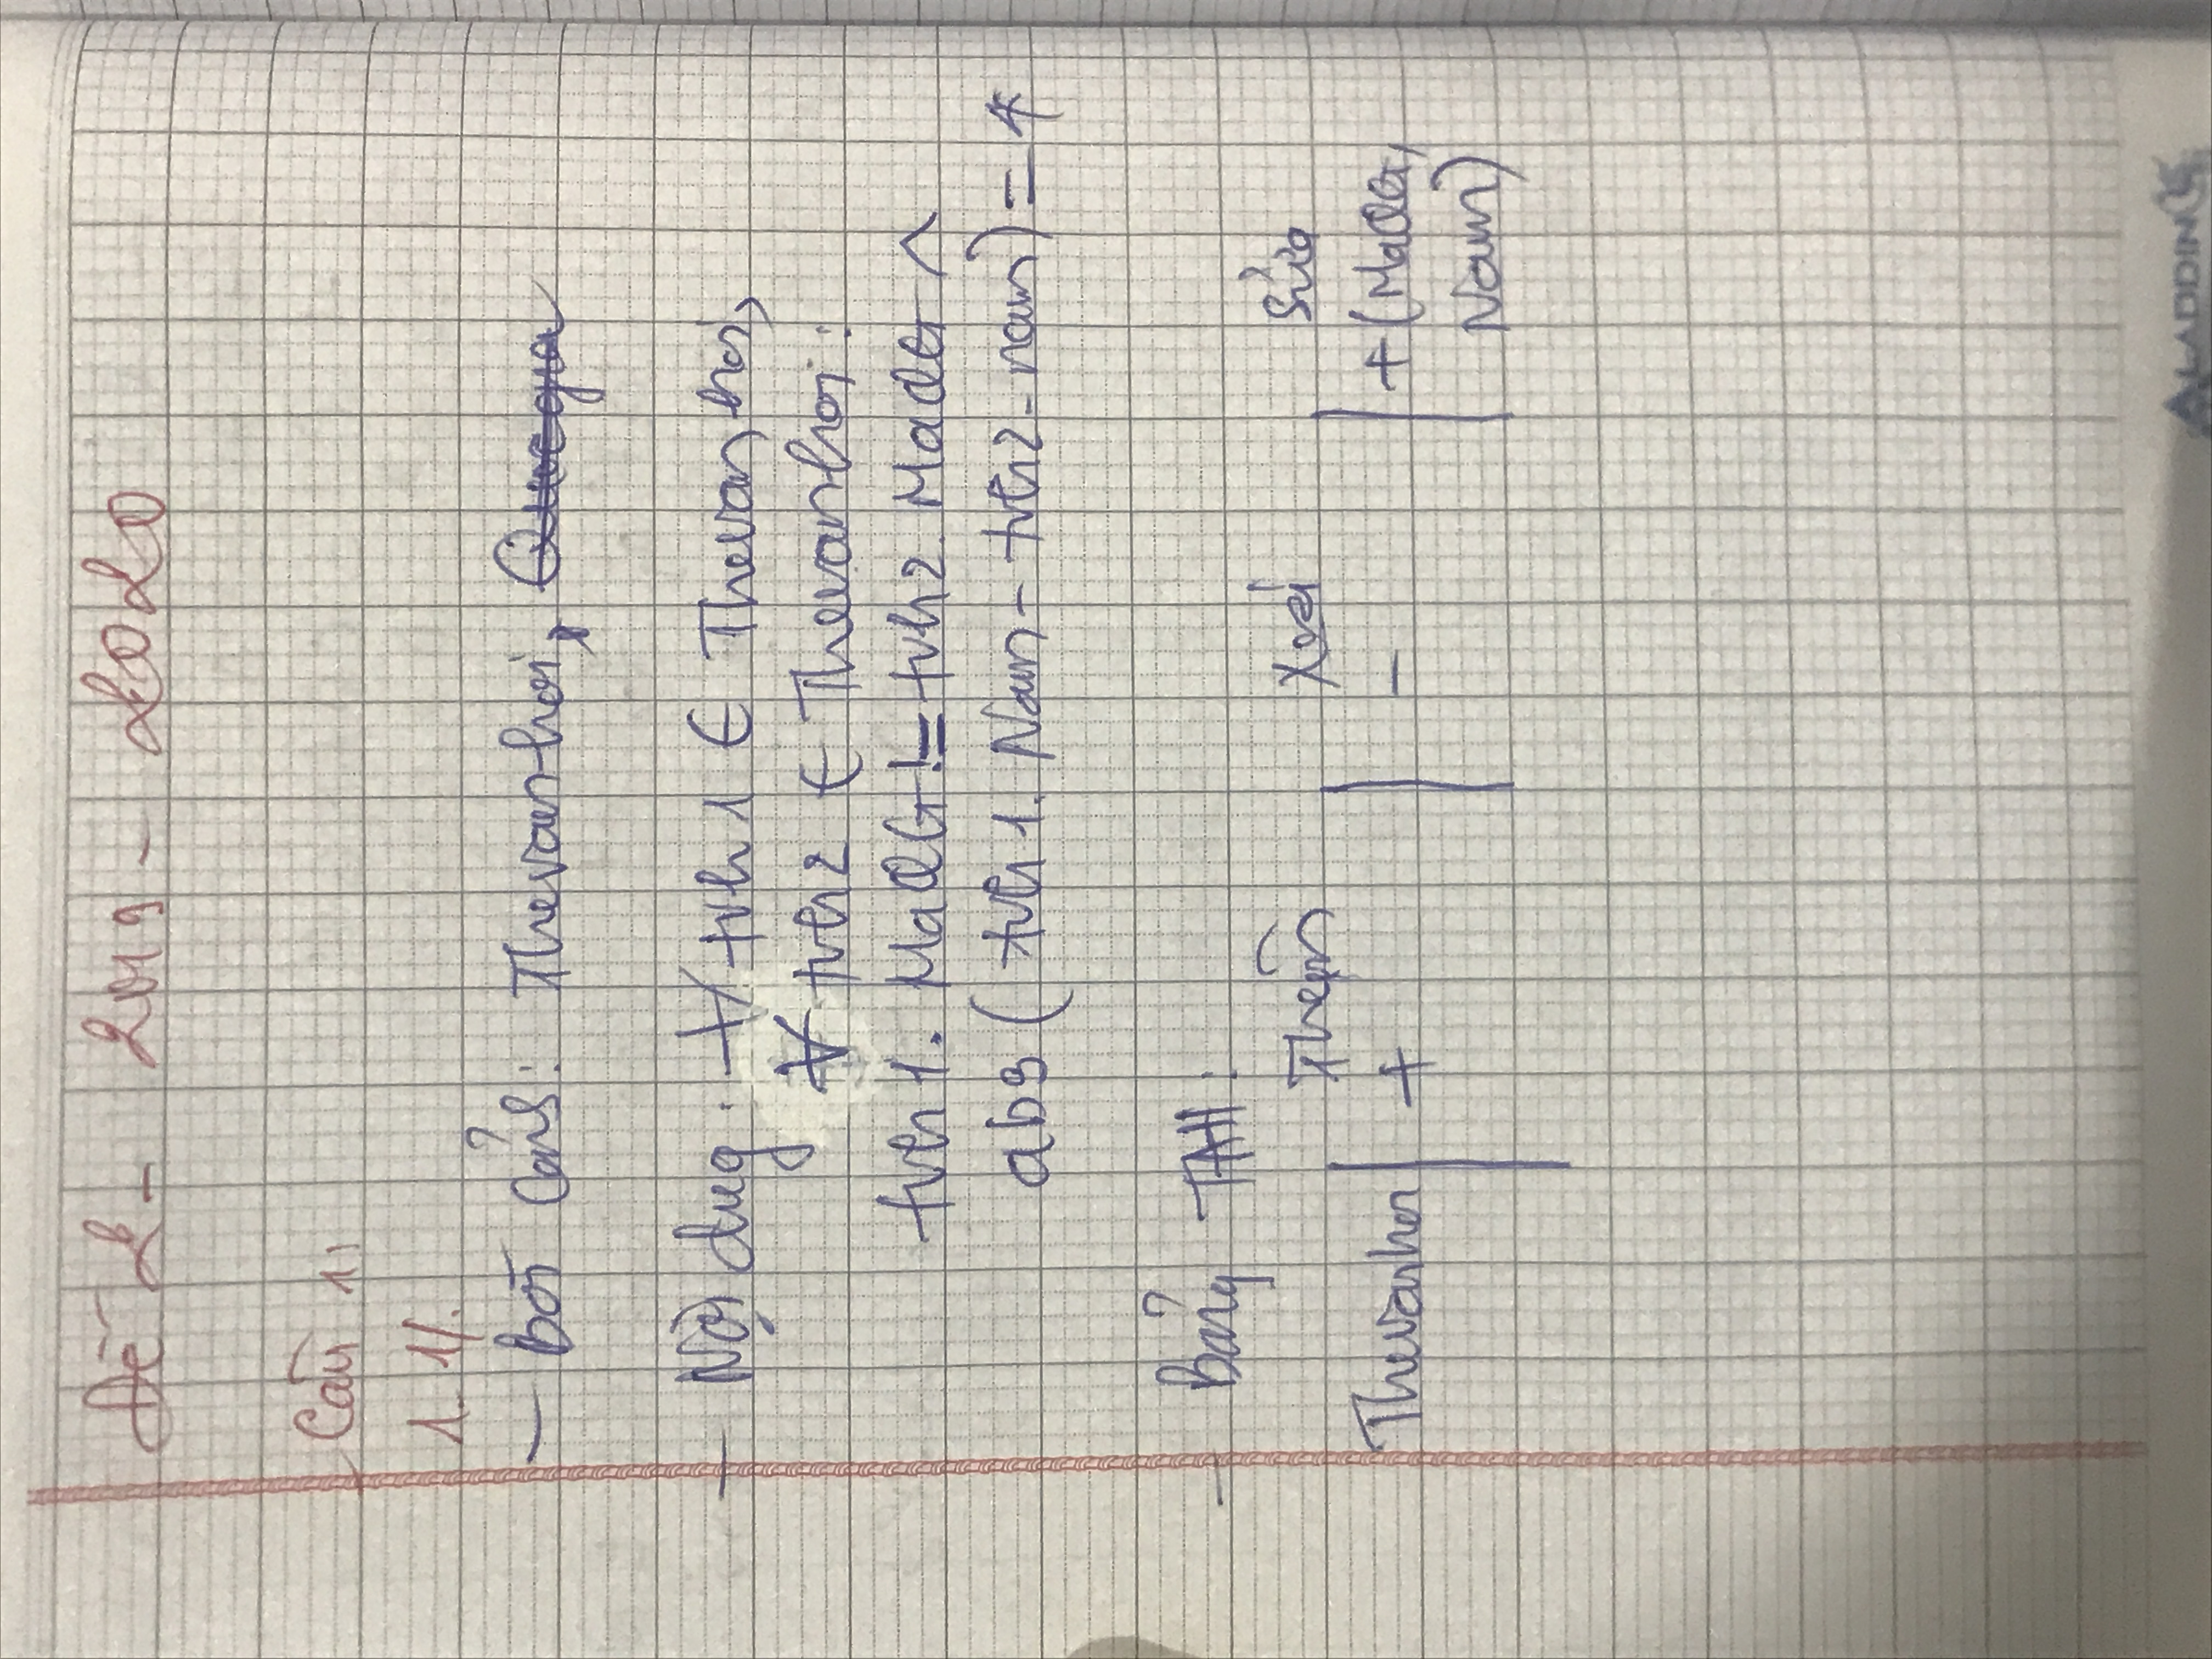 Đề 2 - 2019 - 2020
Câu 1:
1.1/.
- Bối cảnh: Thevanhoi, Quocgia
- Nội dug: ∀ tvh1 ∈ Thevanhoi,
∀ tvh2 ∈ Thevanhoi:
tvh1. MaQG != tvh2. MaQG ∧
abs ( tvh1. Nam - tvh2. nam) = 4
- Bảng TAH:
Thêm Xoá Sửa
Thevanhoi + - + (MaQG,
Nam)
ALADDIN